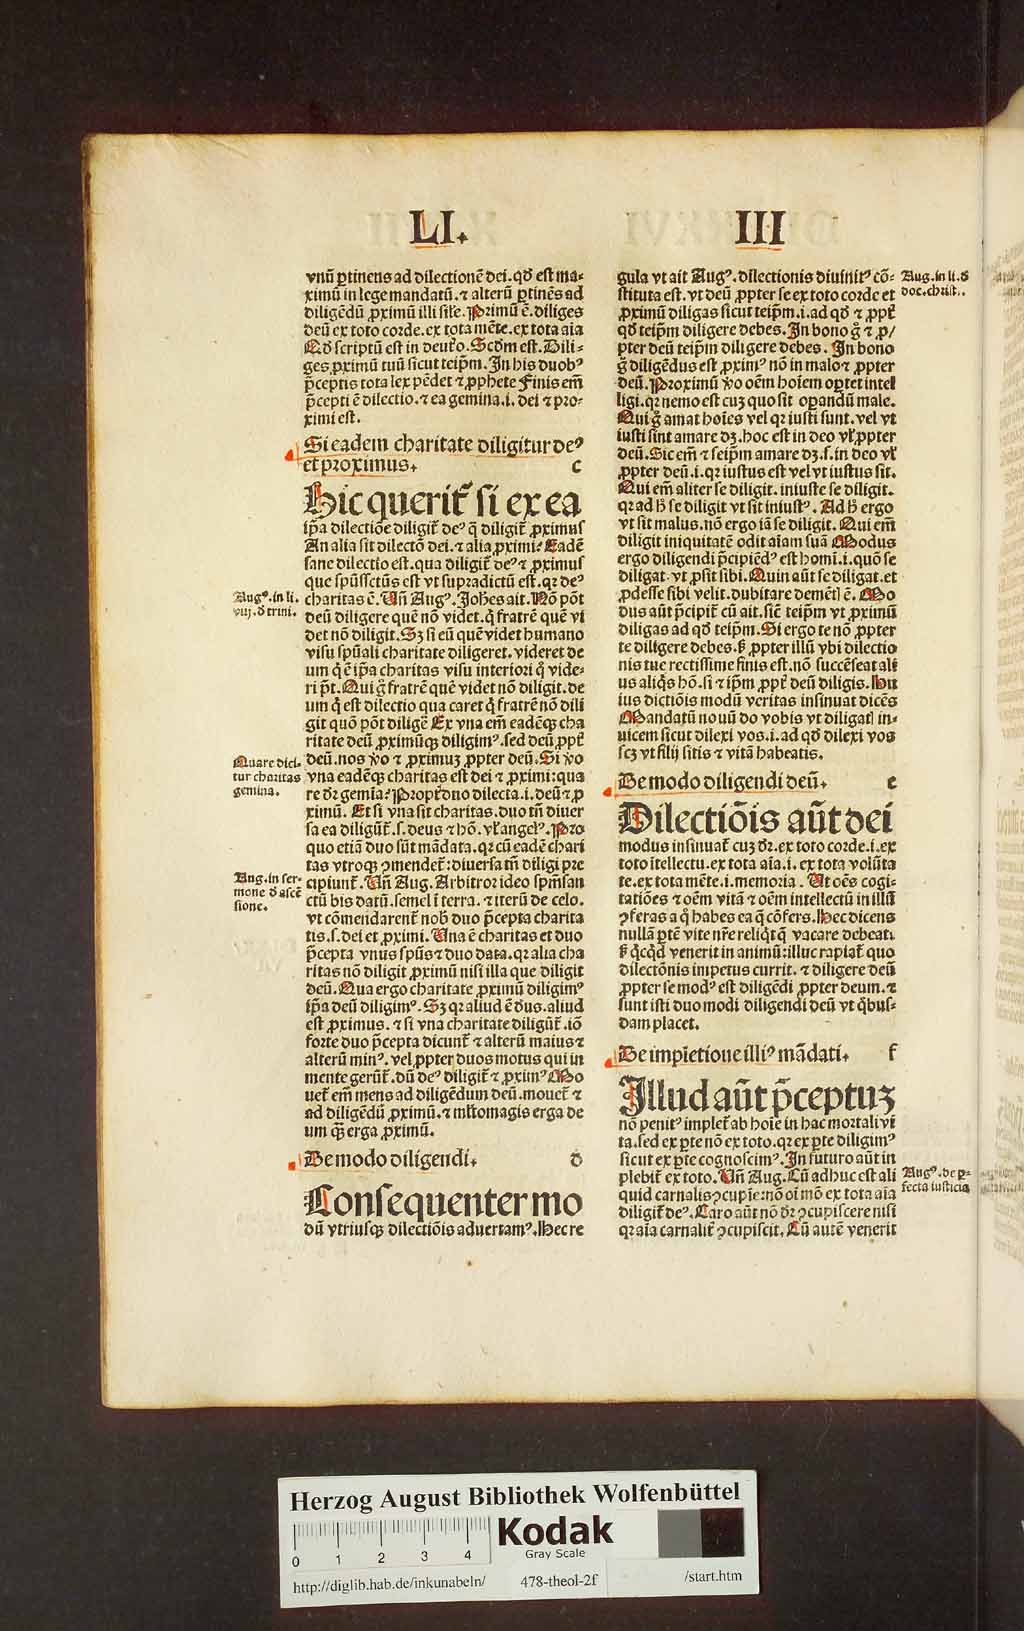 LI.
III
vnū ꝑtinens ad dilectionē dei. qd̄ est ma⸗
ximū in lege mandatū. ⁊ alterū ꝑtinēs ad
diligēdū ꝓximū illi sił̄e. Primū ē. diliges
deū ex toto corde. ex tota mēte. ex tota aīa
Qd̄ scriptū est in deut̄o. Scd̄m est. Dili⸗
ges ꝓximū tuū sicut teip̄m. In his duobꝰ
p̄ceptis tota lex pēdet ⁊ ꝓphete Finis em̄
p̄cepti ē dilectio. ⁊ ea gemina. i. dei ⁊ pro⸗
ximi est.
Si eadem charitate diligitur deꝰ
et proximus. c
Hic querit̄ si ex ea
ip̄a dilectiōe diligit̄ deꝰ q̄ diligit̄ ꝓximus
An alia sit dilectō dei. ⁊ alia ꝓximi? Eadē
sane dilectio est. qua diligit̄ deꝰ ⁊ ꝓximus
que spūssctūs est vt supradictū est. qꝛ deꝰ
charitas ē. Vn̄ Augꝰ. Joh̄es ait. Nō pōt
deū diligere quē nō videt. q̇ fratrē quē vi
det nō diligit. Sꝫ si eū quē videt humano
visu spūali charitate diligeret. videret de
um q̇ ē ip̄a charitas visu interiori q̇ vide⸗
ri p̄t. Qui g̊ fratrē quē videt nō diligit. de
um q̇ est dilectio qua caret q̇ fratrē nō dili
git quō pōt diligē Ex vna em̄ eadēqꝫ cha
ritate deū ꝓximūqꝫ diligimꝰ. sed deū ꝓpt̄
deū. nos v̊o ⁊ ꝓximuꝫ ꝓpter deū. Si v̊o
vna eadēqꝫ charitas est dei ⁊ ꝓximi: qua
re dr̄ gemīa? Propt̄ dno dilecta. i. deū ⁊ ꝓ
ximū. Et si vna sit charitas. duo tn̄ diuer
sa ea diligūt̄. s. deus ⁊ hō. vł̄ angelꝰ. Pro
quo etiā duo sūt mādata. qꝛ cū eadē chari
tas vtroqꝫ ꝯmendet̄: diuersa tn̄ diligi pre
cipiunt̄. Vn̄ Aug. Arbitror ideo spm̄san
ctū bis datū. semel ī terra. ⁊ iterū de celo.
vt cōmendarent̄ nob̄ duo p̄cepta charita
tis. s. dei et ꝓximi. Vna ē charitas et duo
p̄cepta vnus spūs ⁊ duo data. qꝛ alia cha
ritas nō diligit ꝓximū nisi illa que diligit
deū. Qua ergo charitate ꝓximū diligimꝰ
ip̄a deū diligimꝰ. Sꝫ qꝛ aliud ē dn̄s. aliud
est ꝓximus. ⁊ si vna charitate diligūt̄. iō
forte duo p̄cepta dicunt̄ ⁊ alterū maius ⁊
alterū minꝰ. vel ꝓpter duos motus qui in
mente gerūt̄. dū deꝰ diligit̄ ⁊ ꝓximꝰ Mo
uet̄ em̄ mens ad diligēdum deū. mouet̄ ⁊
ad diligēdū ꝓximū. ⁊ ml̄to magis erga de
um qꝫ erga ꝓximū.
De modo diligendi. d
Consequenter mo
dū vtriusqꝫ dilectiōis aduertamꝰ. Hec re
Augꝰ. in li.
viij. d̄ trini.
Quare dici⸗
tur charitas
gemina.
Aug. in ser⸗
mone d̄ ascē
sione.
gula vt ait Augꝰ. dilectionis diuinitꝰ cō⸗
stituta est. vt deū ꝓpter se ex toto corde et
ꝓximū diligas sicut teip̄m. i. ad qd̄ ⁊ ꝓpt̄
qd̄ teip̄m diligere debes. In bono g̊ ⁊ ꝓ/
pter deū teip̄m diligere debes. In bono
g̊ diligēdus est ꝓximꝰ nō in malo ⁊ ꝓpter
deū. Proximū v̊o oēm hoīem oꝑtet intel
ligi. qꝛ nemo est cuꝫ quo sit oꝑandū male.
Qui g̊ amat hoīes vel qꝛ iusti sunt. vel vt
iusti sint amare dꝫ. hoc est in deo vł̄ ꝓpter
deū. Sic em̄ ⁊ seip̄m amare dꝫ. s. in deo vł̄
ꝓpter deū. i. qꝛ iustus est vel vt iustus sit.
Qui em̄ aliter se diligit. iniuste se diligit.
qꝛ ad h̄ se diligit vt sit iniustꝰ. Ad h̄ ergo
vt sit malus. nō ergo iā se diligit. Qui em̄
diligit iniquitatē odit aīam suā Modus
ergo diligendi p̄cipiēdꝰ est homi. i. quō se
diligat. vt ꝓsit sibi. Quin aūt se diligat. et
ꝓdesse sibi velit. dubitare demēt̄ ē. Mo
dus aūt p̄cipit̄ cū ait. sic̄ teip̄m vt ꝓximū
diligas ad qd̄ teip̄m. Si ergo te nō ꝓpter
te diligere debes. s̄ ꝓpter illū vbi dilectio
nis tue rectissime finis est. nō succēseat ali
us aliq̇s hō. si ⁊ ip̄m ꝓpt̄ deū diligis. Hu
ius dictiōis modū veritas insinuat dicēs
Mandatū nouū do vobis vt diligat̄ in⸗
uicem sicut dilexi vos. i. ad qd̄ dilexi vos
scꝫ vt filij sitis ⁊ vitā habeatis.
De modo diligendi deū. e
Dilectiōis aūt dei
modus insinuat̄ cuꝫ dr̄. ex toto corde. i. ex
toto ītellectu. ex tota aīa. i. ex tota volūta
te. ex tota mēte. i. memoria. Ut oēs cogi⸗
tatiōes ⁊ oēm vitā ⁊ oēm intellectū in illū
ꝯferas a q̇ habes ea q̄ cōfers. Hec dicens
nullā ꝑtē vite nr̄e reliq̇t q̄ vacare debeat.
s̄ q̇cq̇d venerit in animū: illuc rapiat̄ quo
dilectōnis impetus currit. ⁊ diligere deū
ꝓpter se modꝰ est diligēdi ꝓpter deum. ⁊
sunt isti duo modi diligendi deū vt q̇bus⸗
dam placet.
De impletione illiꝰ mādati. f
Illud aūt p̄ceptuꝫ
nō penitꝰ implet̄ ab hoīe in hac mortali vi
ta. sed ex ꝑte nō ex toto. qꝛ ex ꝑte diligimꝰ
sicut ex ꝑte cognoscimꝰ. In futuro aūt im
plebit̄ ex toto. Vn̄ Aug. Cū adhuc est ali
quid carnalis ꝯcupīe: nō oī mō ex tota aīa
diligit̄ deꝰ. Caro aūt nō dr̄ ꝯcupiscere nisi
qꝛ aīa carnalit̄ ꝯcupiscit. Cū autē venerit
Aug. in li. d̄
doc. christ.
Augꝰ. de ꝑ⸗
fecta iusticia
Herzog August Bibliothek Wolfenbüttel
0 1 2 3 4
Kodak
Gray Scale
http://diglib.hab.de/inkunabeln/ 478-theol-2f /start.htm